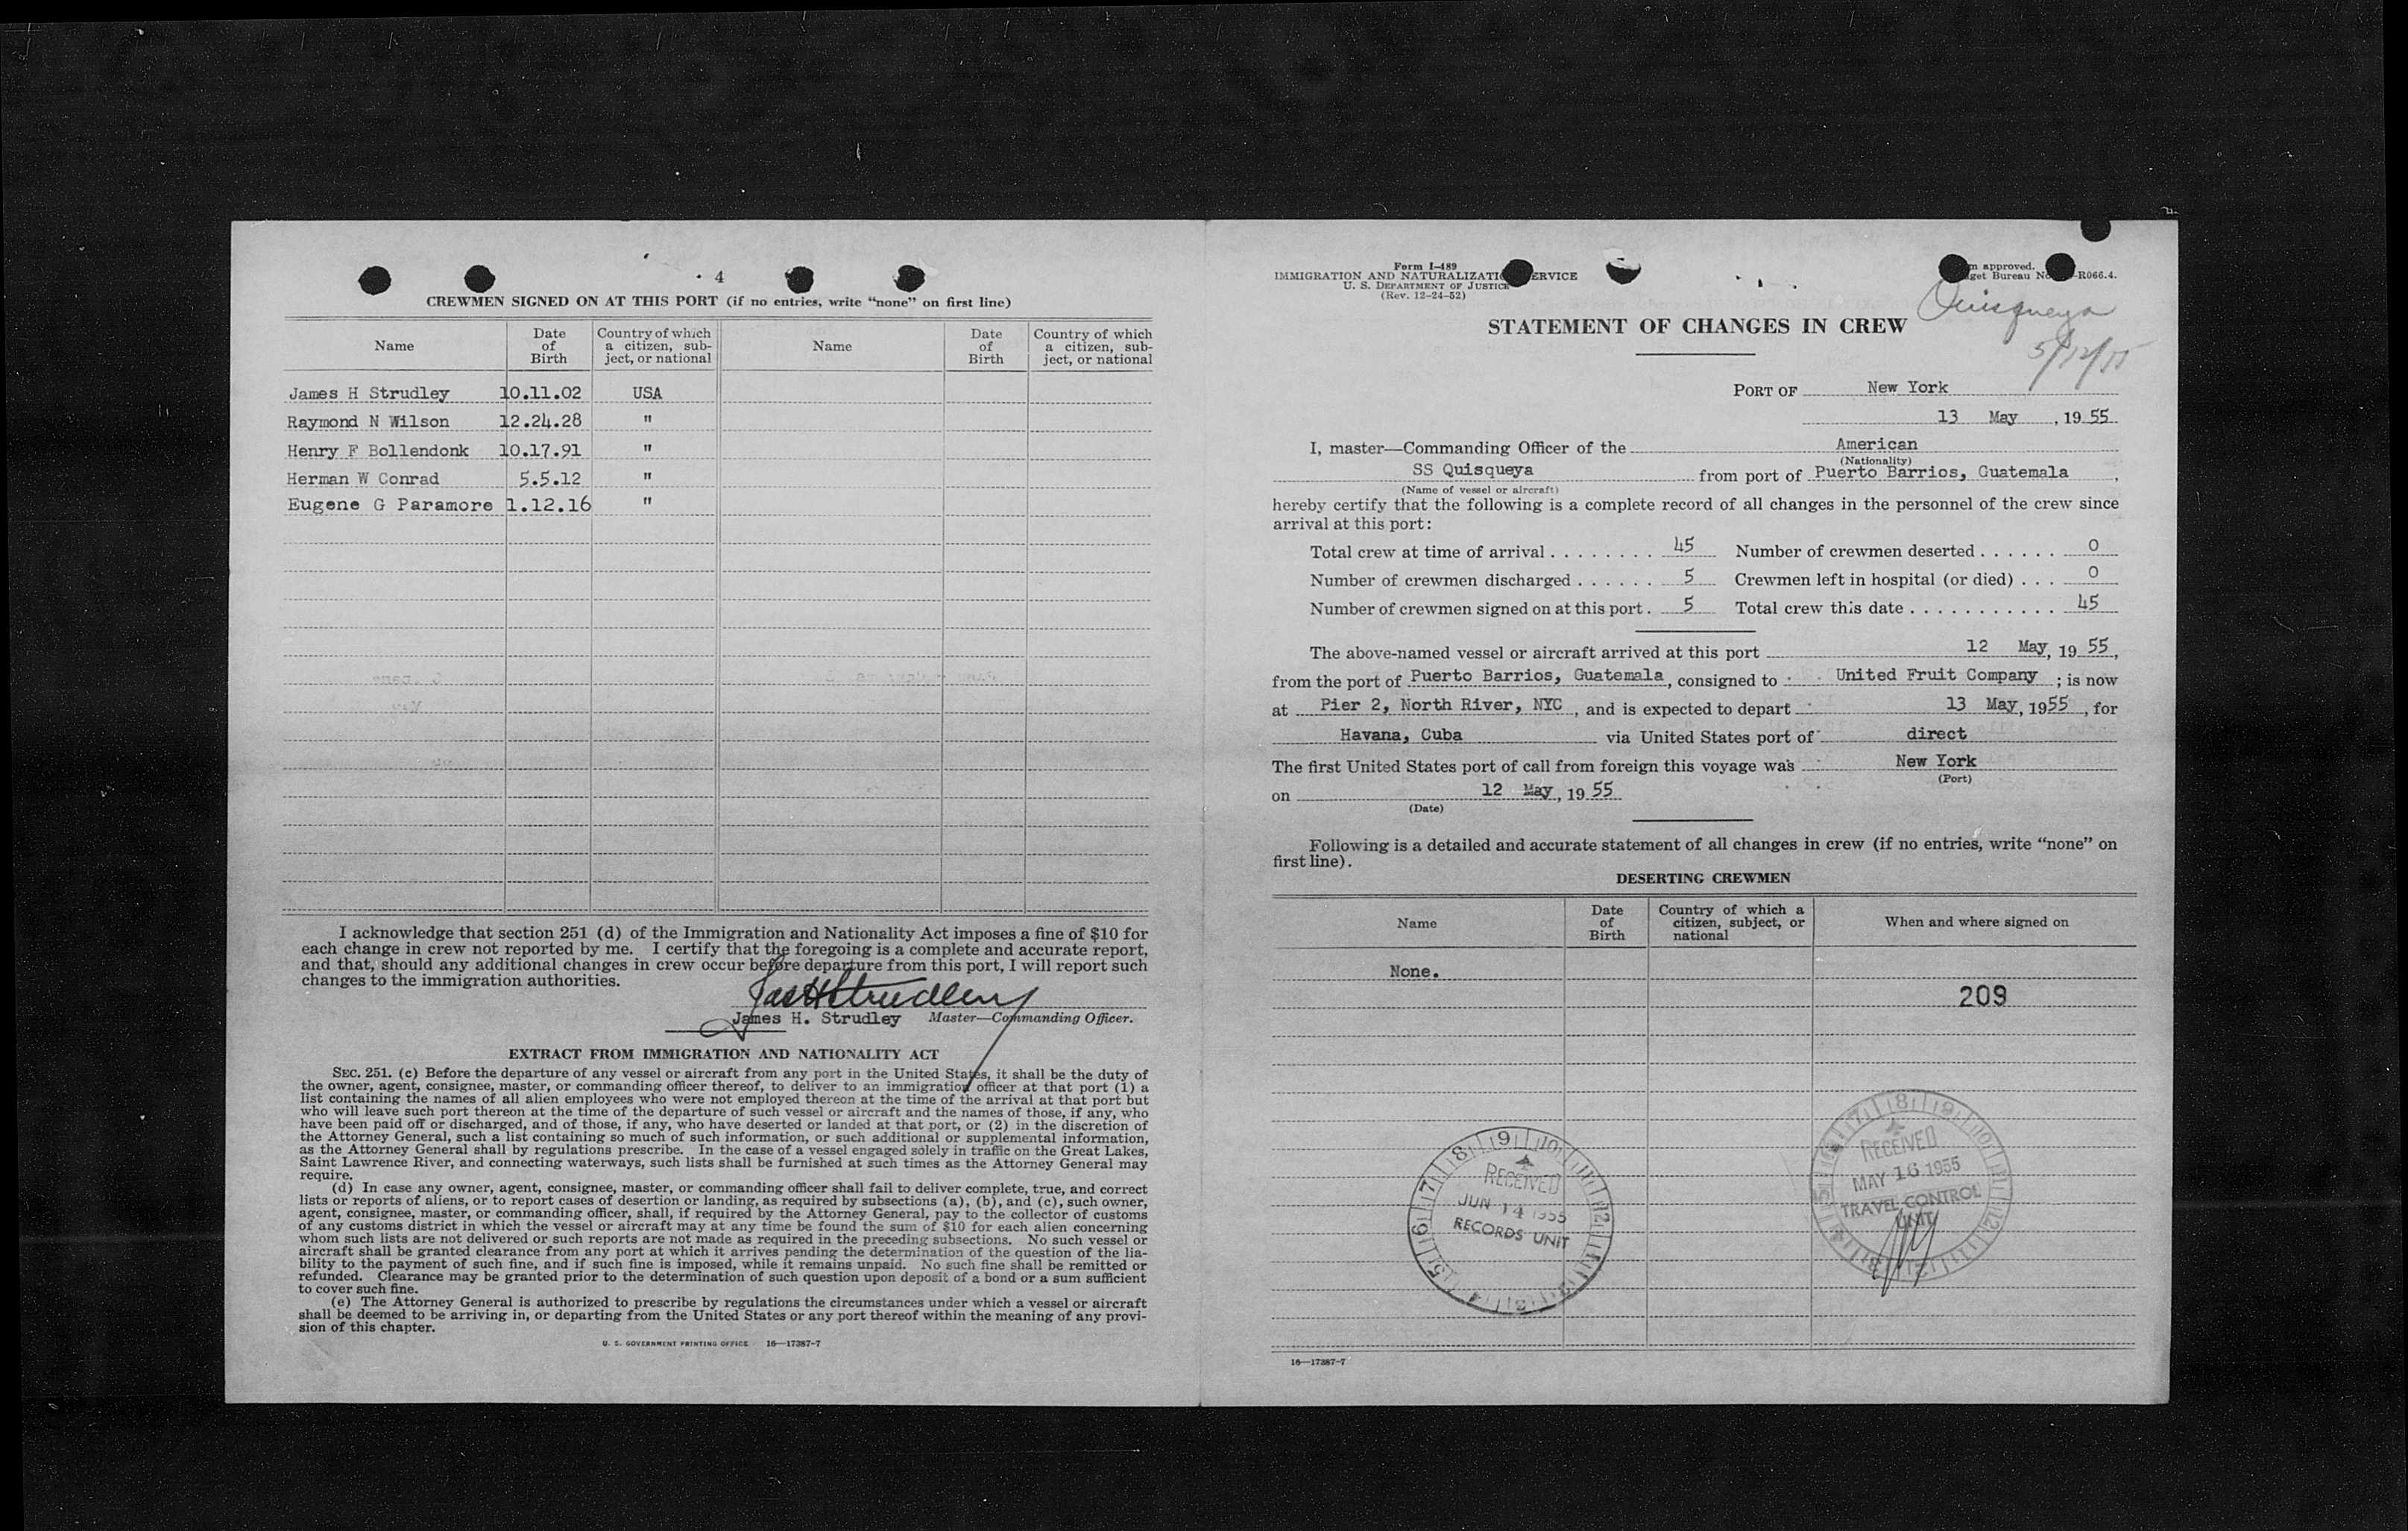 4
CREWMEN SIGNED ON AT THIS PORT (if no entries, write “none” on first line)
Name Date of Birth Country of which a citizen, subject, or national Name Date of Birth Country of which a citizen, subject, or national
James H Strudley 10.11.02 USA
Raymond N Wilson 12.24.28 "
Henry F Bollendonk 10.17.91 "
Herman W Conrad 5.5.12 "
Eugene G Paramore 1.12.16 "
I acknowledge that section 251 (d) of the Immigration and Nationality Act imposes a fine of $10 for
each change in crew not reported by me. I certify that the foregoing is a complete and accurate report,
and that, should any additional changes in crew occur before departure from this port, I will report such
changes to the immigration authorities.
Jas H Strudley
James H. Strudley Master—Commanding Officer.
EXTRACT FROM IMMIGRATION AND NATIONALITY ACT
SEC. 251. (c) Before the departure of any vessel or aircraft from any port in the United States, it shall be the duty of
the owner, agent, consignee, master, or commanding officer thereof, to deliver to an immigration officer at that port (1) a
list containing the names of all alien employees who were not employed thereon at the time of the arrival at that port but
who will leave such port thereon at the time of the departure of such vessel or aircraft and the names of those, if any, who
have been paid off or discharged, and of those, if any, who have deserted or landed at that port, or (2) in the discretion of
the Attorney General, such a list containing so much of such information, or such additional or supplemental information,
as the Attorney General shall by regulations prescribe. In the case of a vessel engaged solely in traffic on the Great Lakes,
Saint Lawrence River, and connecting waterways, such lists shall be furnished at such times as the Attorney General may
require.
(d) In case any owner, agent, consignee, master, or commanding officer shall fail to deliver complete, true, and correct
lists or reports of aliens, or to report cases of desertion or landing, as required by subsections (a), (b), and (c), such owner,
agent, consignee, master, or commanding officer, shall, if required by the Attorney General, pay to the collector of customs
of any customs district in which the vessel or aircraft may at any time be found the sum of $10 for each alien concerning
whom such lists are not delivered or such reports are not made as required in the preceding subsections. No such vessel or
aircraft shall be granted clearance from any port at which it arrives pending the determination of the question of the lia-
bility to the payment of such fine, and if such fine is imposed, while it remains unpaid. No such fine shall be remitted or
refunded. Clearance may be granted prior to the determination of such question upon deposit of a bond or a sum sufficient
to cover such fine.
(e) The Attorney General is authorized to prescribe by regulations the circumstances under which a vessel or aircraft
shall be deemed to be arriving in, or departing from the United States or any port thereof within the meaning of any provi-
sion of this chapter.
U. S. GOVERNMENT PRINTING OFFICE 16—17387-7
Form I-489
IMMIGRATION AND NATURALIZATION SERVICE
U. S. DEPARTMENT OF JUSTICE
(Rev. 12-24-52)
approved.
Bureau No. -R066.4.
Quisqueya
5/12/55
STATEMENT OF CHANGES IN CREW
PORT OF New York
13 May, 1955
I, master—Commanding Officer of the American
(Nationality)
SS Quisqueya from port of Puerto Barrios, Guatemala,
(Name of vessel or aircraft)
hereby certify that the following is a complete record of all changes in the personnel of the crew since
arrival at this port:
Total crew at time of arrival 45 Number of crewmen deserted 0
Number of crewmen discharged 5 Crewmen left in hospital (or died) 0
Number of crewmen signed on at this port 5 Total crew this date 45
The above-named vessel or aircraft arrived at this port 12 May, 1955,
from the port of Puerto Barrios, Guatemala, consigned to United Fruit Company; is now
at Pier 2, North River, NYC, and is expected to depart 13 May, 1955, for
Havana, Cuba via United States port of direct
The first United States port of call from foreign this voyage was New York
(Port)
on 12 May, 1955
(Date)
Following is a detailed and accurate statement of all changes in crew (if no entries, write “none” on
first line).
DESERTING CREWMEN
Name Date of Birth Country of which a citizen, subject, or national When and where signed on
None.
209
RECEIVED
JUN 14 1955
RECORDS UNIT
RECEIVED
MAY 16 1955
TRAVEL CONTROL
UNIT
16—17387-7